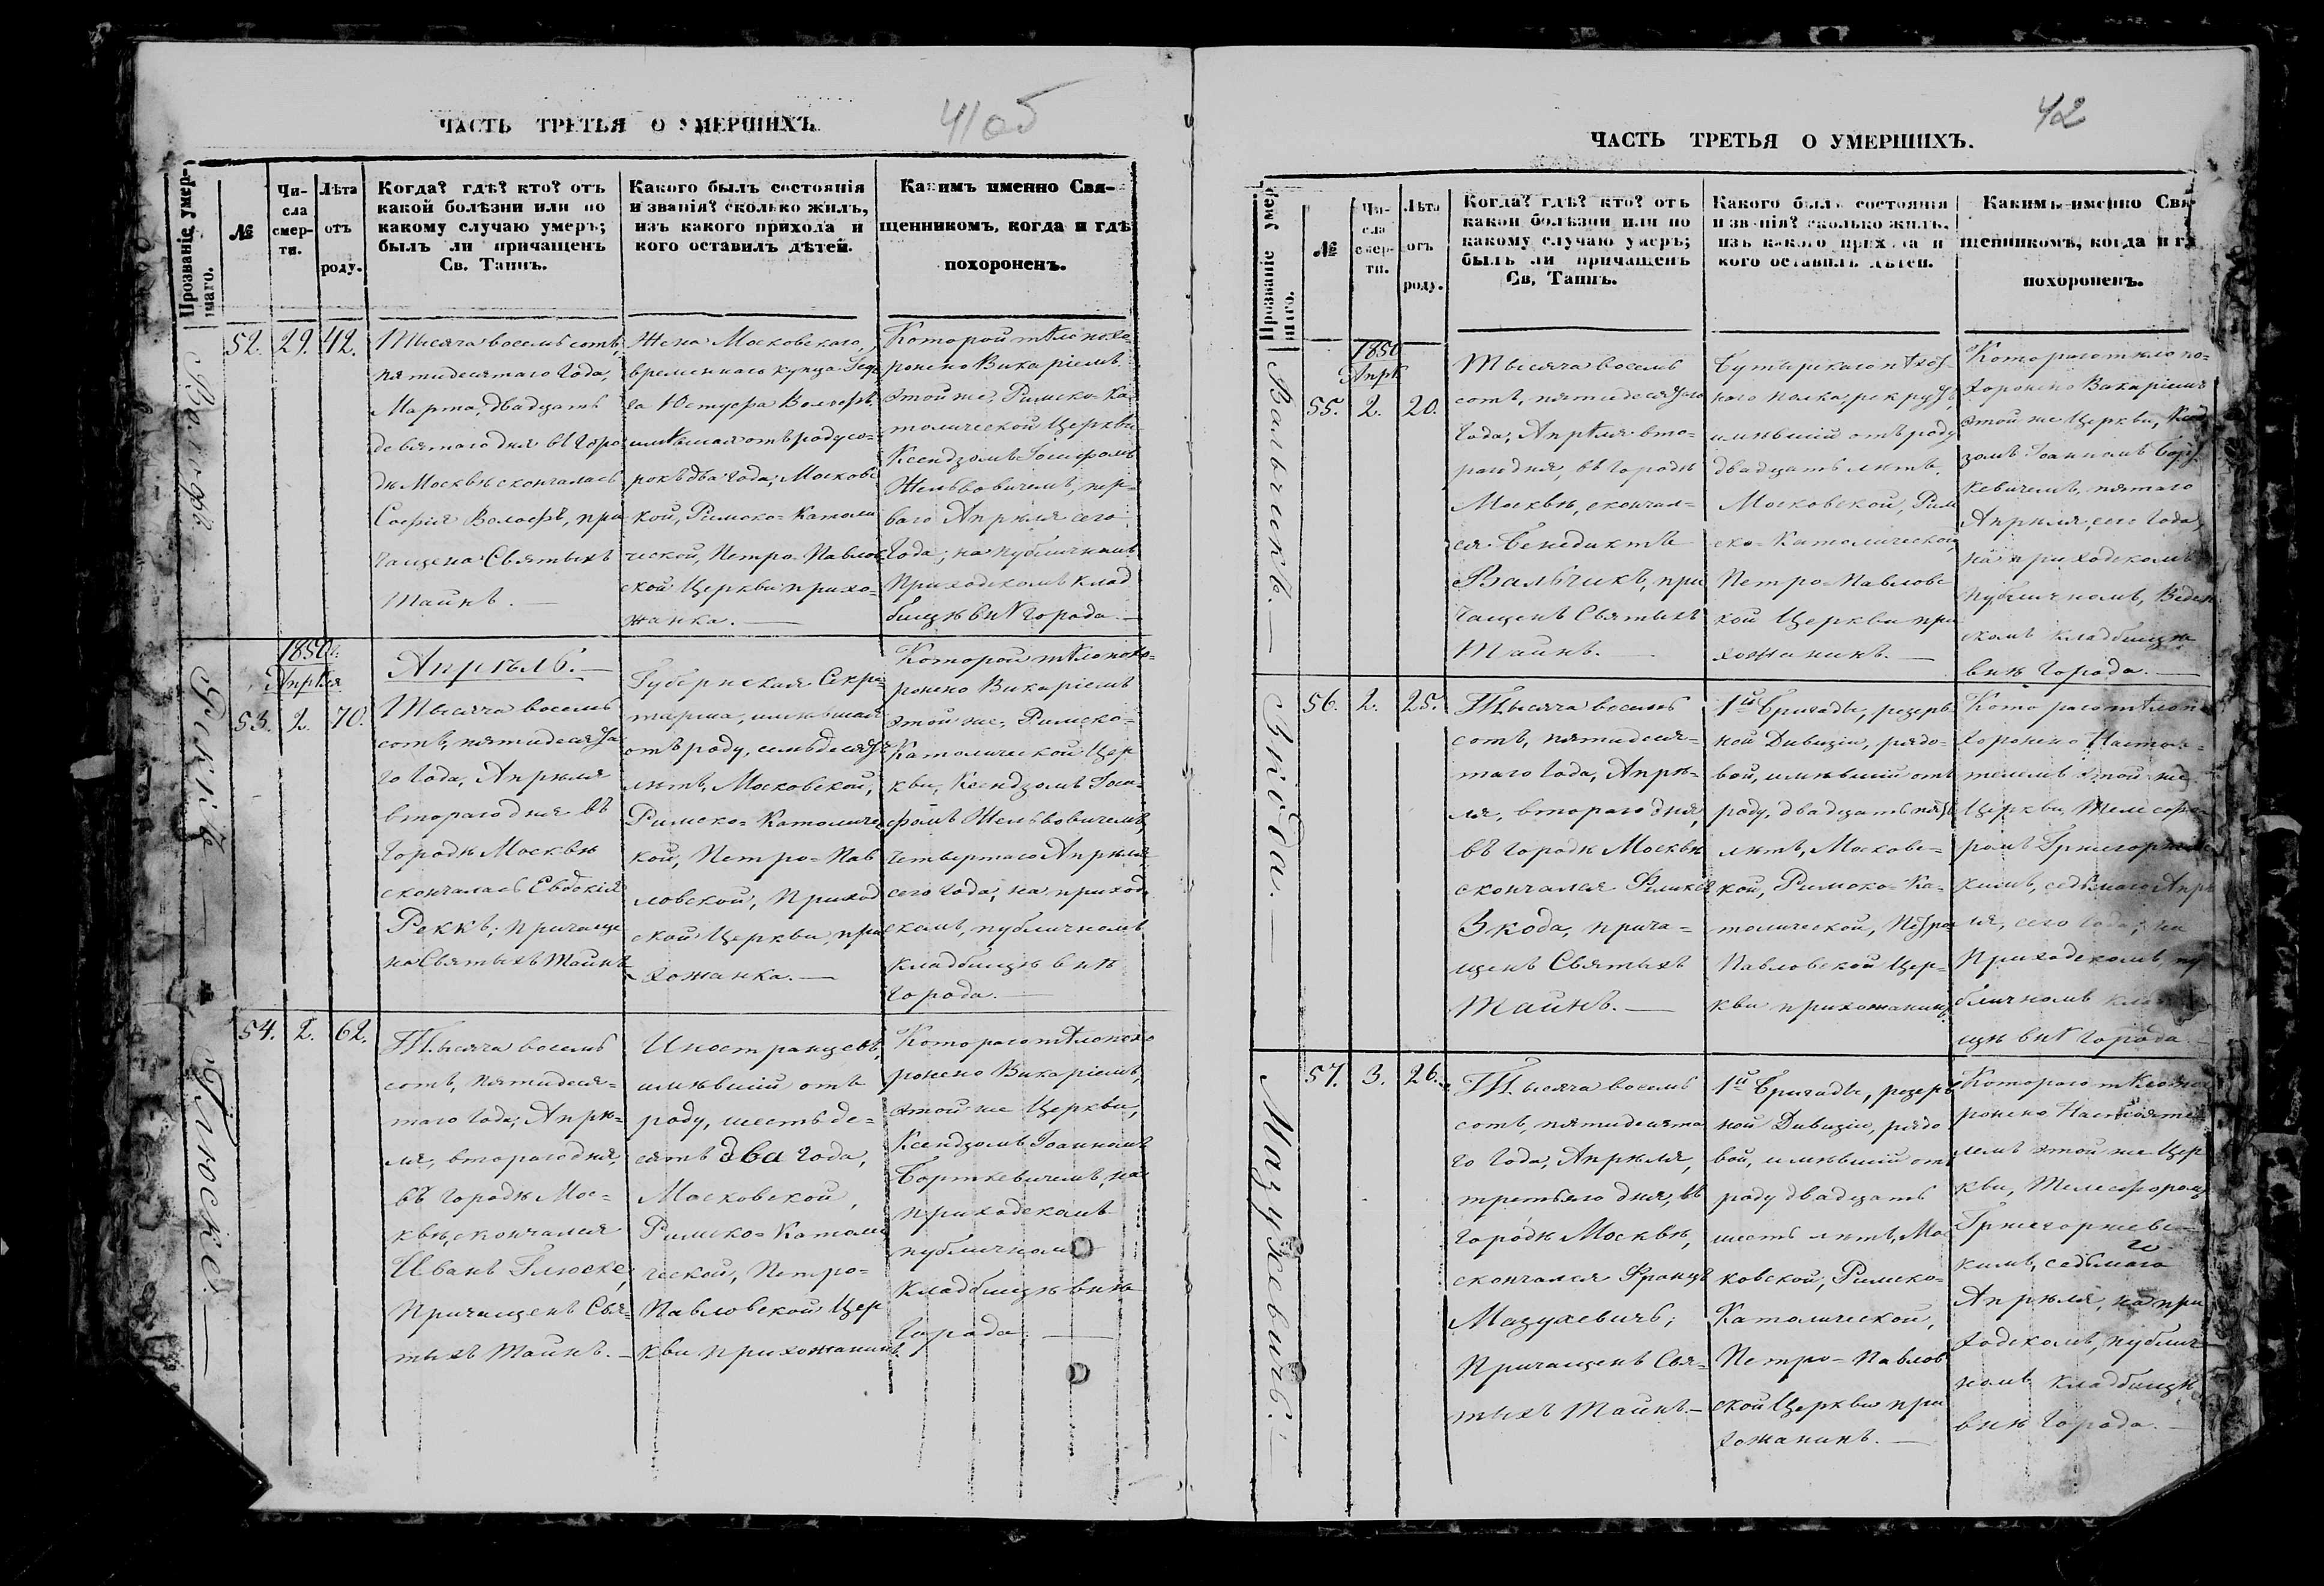 41 об
ЧАСТЬ ТРЕТЬЯ О УМЕРШИХЪ.
Прозваніе умер-
шаго.
№
Чи-
сла
смер-
ти.
Лѣта
отъ
роду.
Когда? гдѣ? кто? отъ
какой болѣзни или по
какому случаю умеръ;
былъ ли причащенъ
Св. Таинъ.
Какого былъ состоянія
и званія? сколько жилъ,
изъ какого прихода и
кого оставилъ дѣтей.
Какимъ именно Свя-
щенникомъ, когда и гдѣ
похороненъ.
52. 29. 42.
Тысяча восемь сотъ,
пятидесятаго Года,
Марта, двадцать
девятаго дня въ Горо
дѣ Москвѣ скончалась
Софія Волофъ, при
чащена Святыхъ
Таинъ. —
Жена Московскаго,
временнаго купца
имѣвшая отъ роду со=
рокъ два года; Московс
кой, Римско=Католи
ческой, Петро=Павлов
ской Церкви прихо=
жанка. —
Которой тѣло похо
ронено Викаріемъ
этой же, Римско=Ка
толической Церкви
Ксендзомъ Іосифомъ
Жельвовичемъ, пер=
ваго Апрѣля сего
Года; на публичномъ
Приходскомъ клад
бищѣ внѣ города. —
Реккъ —
1850 г.
Апрѣля
53. 2. 70.
Апрѣль. —
Тысяча восемь
сотъ, пятидесята
го Года, Апрѣля
втораго дня въ
Городѣ Москвѣ
скончалась Евдокія
Реккъ; причаще
на Святыхъ Таинъ
Губернская Секре
тарша, имѣвшая
отъ роду, семьдесятъ
лѣтъ, Московской,
Римско=Католичес
кой, Петро=Пав
ловской, Приход
ской Церкви, при
хожанка. —
Которой тѣло похо=
ронено Викаріемъ
этой же, Римско=
Католической Цер
кви, Ксендзомъ Іоси=
фомъ Жельвовичемъ,
четвертаго Апрѣля
сего Года, на приход
скомъ, публичномъ
кладбищѣ внѣ
Города. —
Глюске. —
54. 2. 62.
Тысяча восемь
сотъ, пятидеся=
таго Года; Апрѣ=
ля, втораго дня,
въ городѣ Мос=
квѣ, скончался
Иванъ Глюске,
Причащенъ Свя=
тыхъ Таинъ. —
Иностранцевъ,
имѣвшій отъ
роду, шестьде=
сятъ два года,
Московской,
Римско=Католи
ческой, Петро=
Павловской Цер
кви прихожанинъ.
Котораго тѣло похо
ронено Викаріемъ,
этой же Церкви,
Ксендзомъ Іоанномъ
Борткевичемъ, на
приходскомъ
публичномъ
кладбищѣ внѣ
Города. —
42
ЧАСТЬ ТРЕТЬЯ О УМЕРШИХЪ.
Прозваніе умер
шаго.
№
Чи-
сла
смер-
ти.
Лѣта
отъ
роду.
Когда? гдѣ? кто? отъ
какой болѣзни или по
какому случаю умеръ;
былъ ли причащенъ
Св. Таинъ.
Какого былъ состоянія
и званія? сколько жилъ,
изъ какого прихода и
кого оставилъ дѣтей.
Какимъ именно Свя-
щенникомъ, когда и гдѣ
похороненъ.
Вальчикъ. —
1850
Апрѣ
55. 2. 20.
Тысяча восемь
сотъ, пятидесятаго
Года; Апрѣля вто=
раго дня, въ городѣ
Москвѣ, скончал=
ся Бенедиктъ
Вальчикъ, при
чащенъ Святыхъ
Таинъ. —
Бутырскаго пѣхот=
наго полка, рекрутъ,
имѣвшій отъ роду
двадцать лѣтъ,
Московской, Рим
ско=Католической,
Петро=Павловс
кой Церкви при
хожанинъ. —
Котораго тѣло по=
хоронено Викаріемъ
этой же Церкви, Ксенд
зомъ Іоанномъ Борт
кевичемъ, пятаго
Апрѣля, сего Года,
на приходскомъ
публичномъ, Веден
скомъ кладбищѣ
внѣ Города. —
Зкода. —
56. 2. 25.
Тысяча восемь
сотъ, пятидеся=
таго Года, Апрѣ=
ля, втораго дня,
въ городѣ Москвѣ
скончался Феликсъ
Зкода, прича=
щенъ Святыхъ
Таинъ. —
1й Бригады, резерв
ной Дивизіи, рядо=
вой, имѣвшій отъ
роду, двадцать пять
лѣтъ, Московс=
кой, Римско=Ка=
толической, Петро
Павловской Цер=
кви прихожанинъ.
Котораго тѣло по
хоронено Настоя=
телемъ этой же
Церкви, Телесфо=
ромъ Гржегоржевс
кимъ, седьмаго Апрѣ
ля, сего Года; на
Приходскомъ, пу
бличномъ клад
щѣ внѣ Города. —
Мазухевичъ. —
57. 3. 26.
Тысяча восемь
сотъ, пятидесята
го Года, Апрѣля,
третьяго дня, въ
Городѣ Москвѣ,
скончался Францъ
Мазухевичъ;
Причащенъ Свя=
тыхъ Таинъ. —
1й Бригады, резерв
ной Дивизіи, рядо
вой, имѣвшій отъ
роду двадцать
шесть лѣтъ, Мос
ковской, Римско=
Католической,
Петро=Павлов
ской Церкви при
хожанинъ. —
Котораго тѣло похо
ронено Настояте
лемъ этой же Цер
кви, Телесфоромъ
Гржегоржевс
кимъ, седьмаго
Апрѣля, на при
ходскомъ, публич
номъ кладбищѣ
внѣ Города. —